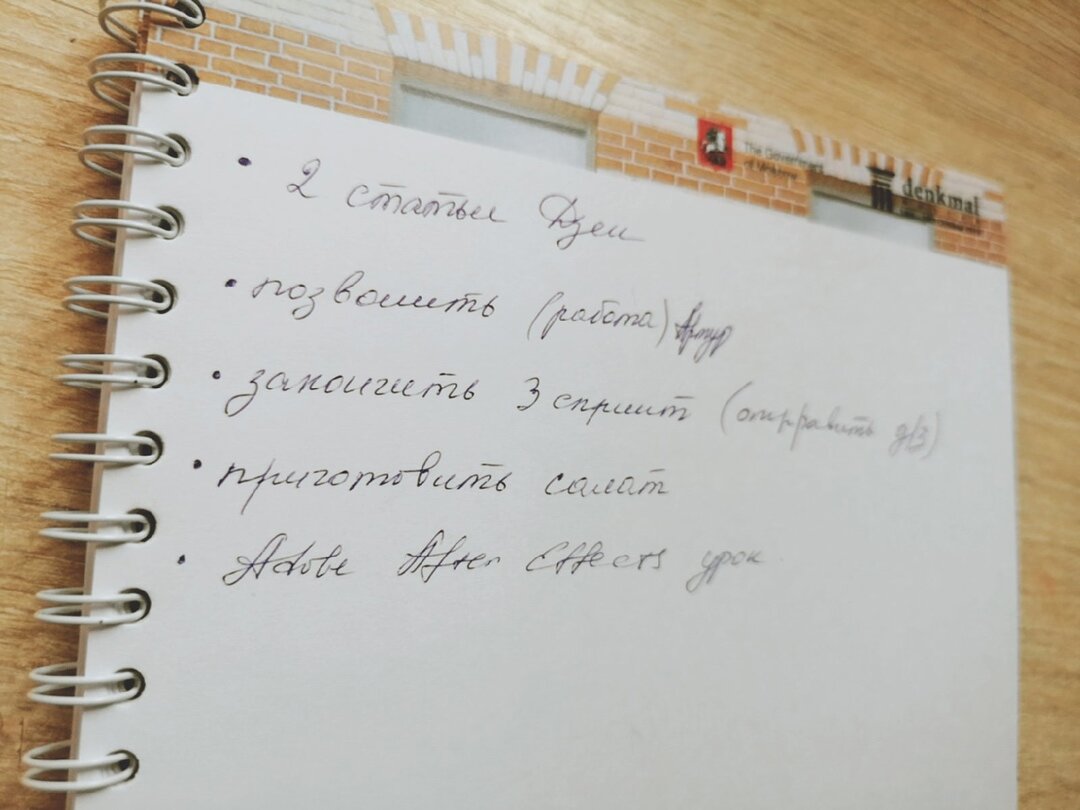 The Government
of Moscow
denkmal
• 2 статьи Дзен
• позвонить (работа) Артур
• закончить 3 спринт (отправить д/з)
• приготовить салат
• Adobe After Effects урок